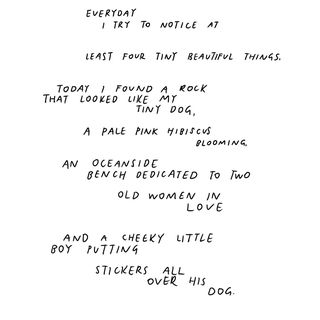 EVERYDAY
I TRY TO NOTICE AT
LEAST FOUR TINY BEAUTIFUL THINGS.
TODAY I FOUND A ROCK
THAT LOOKED LIKE MY
TINY DOG,
A PALE PINK HIBISCUS
BLOOMING,
AN OCEANSIDE
BENCH DEDICATED TO TWO
OLD WOMEN IN
LOVE
AND A CHEEKY LITTLE
BOY PUTTING
STICKERS ALL
OVER HIS
DOG.